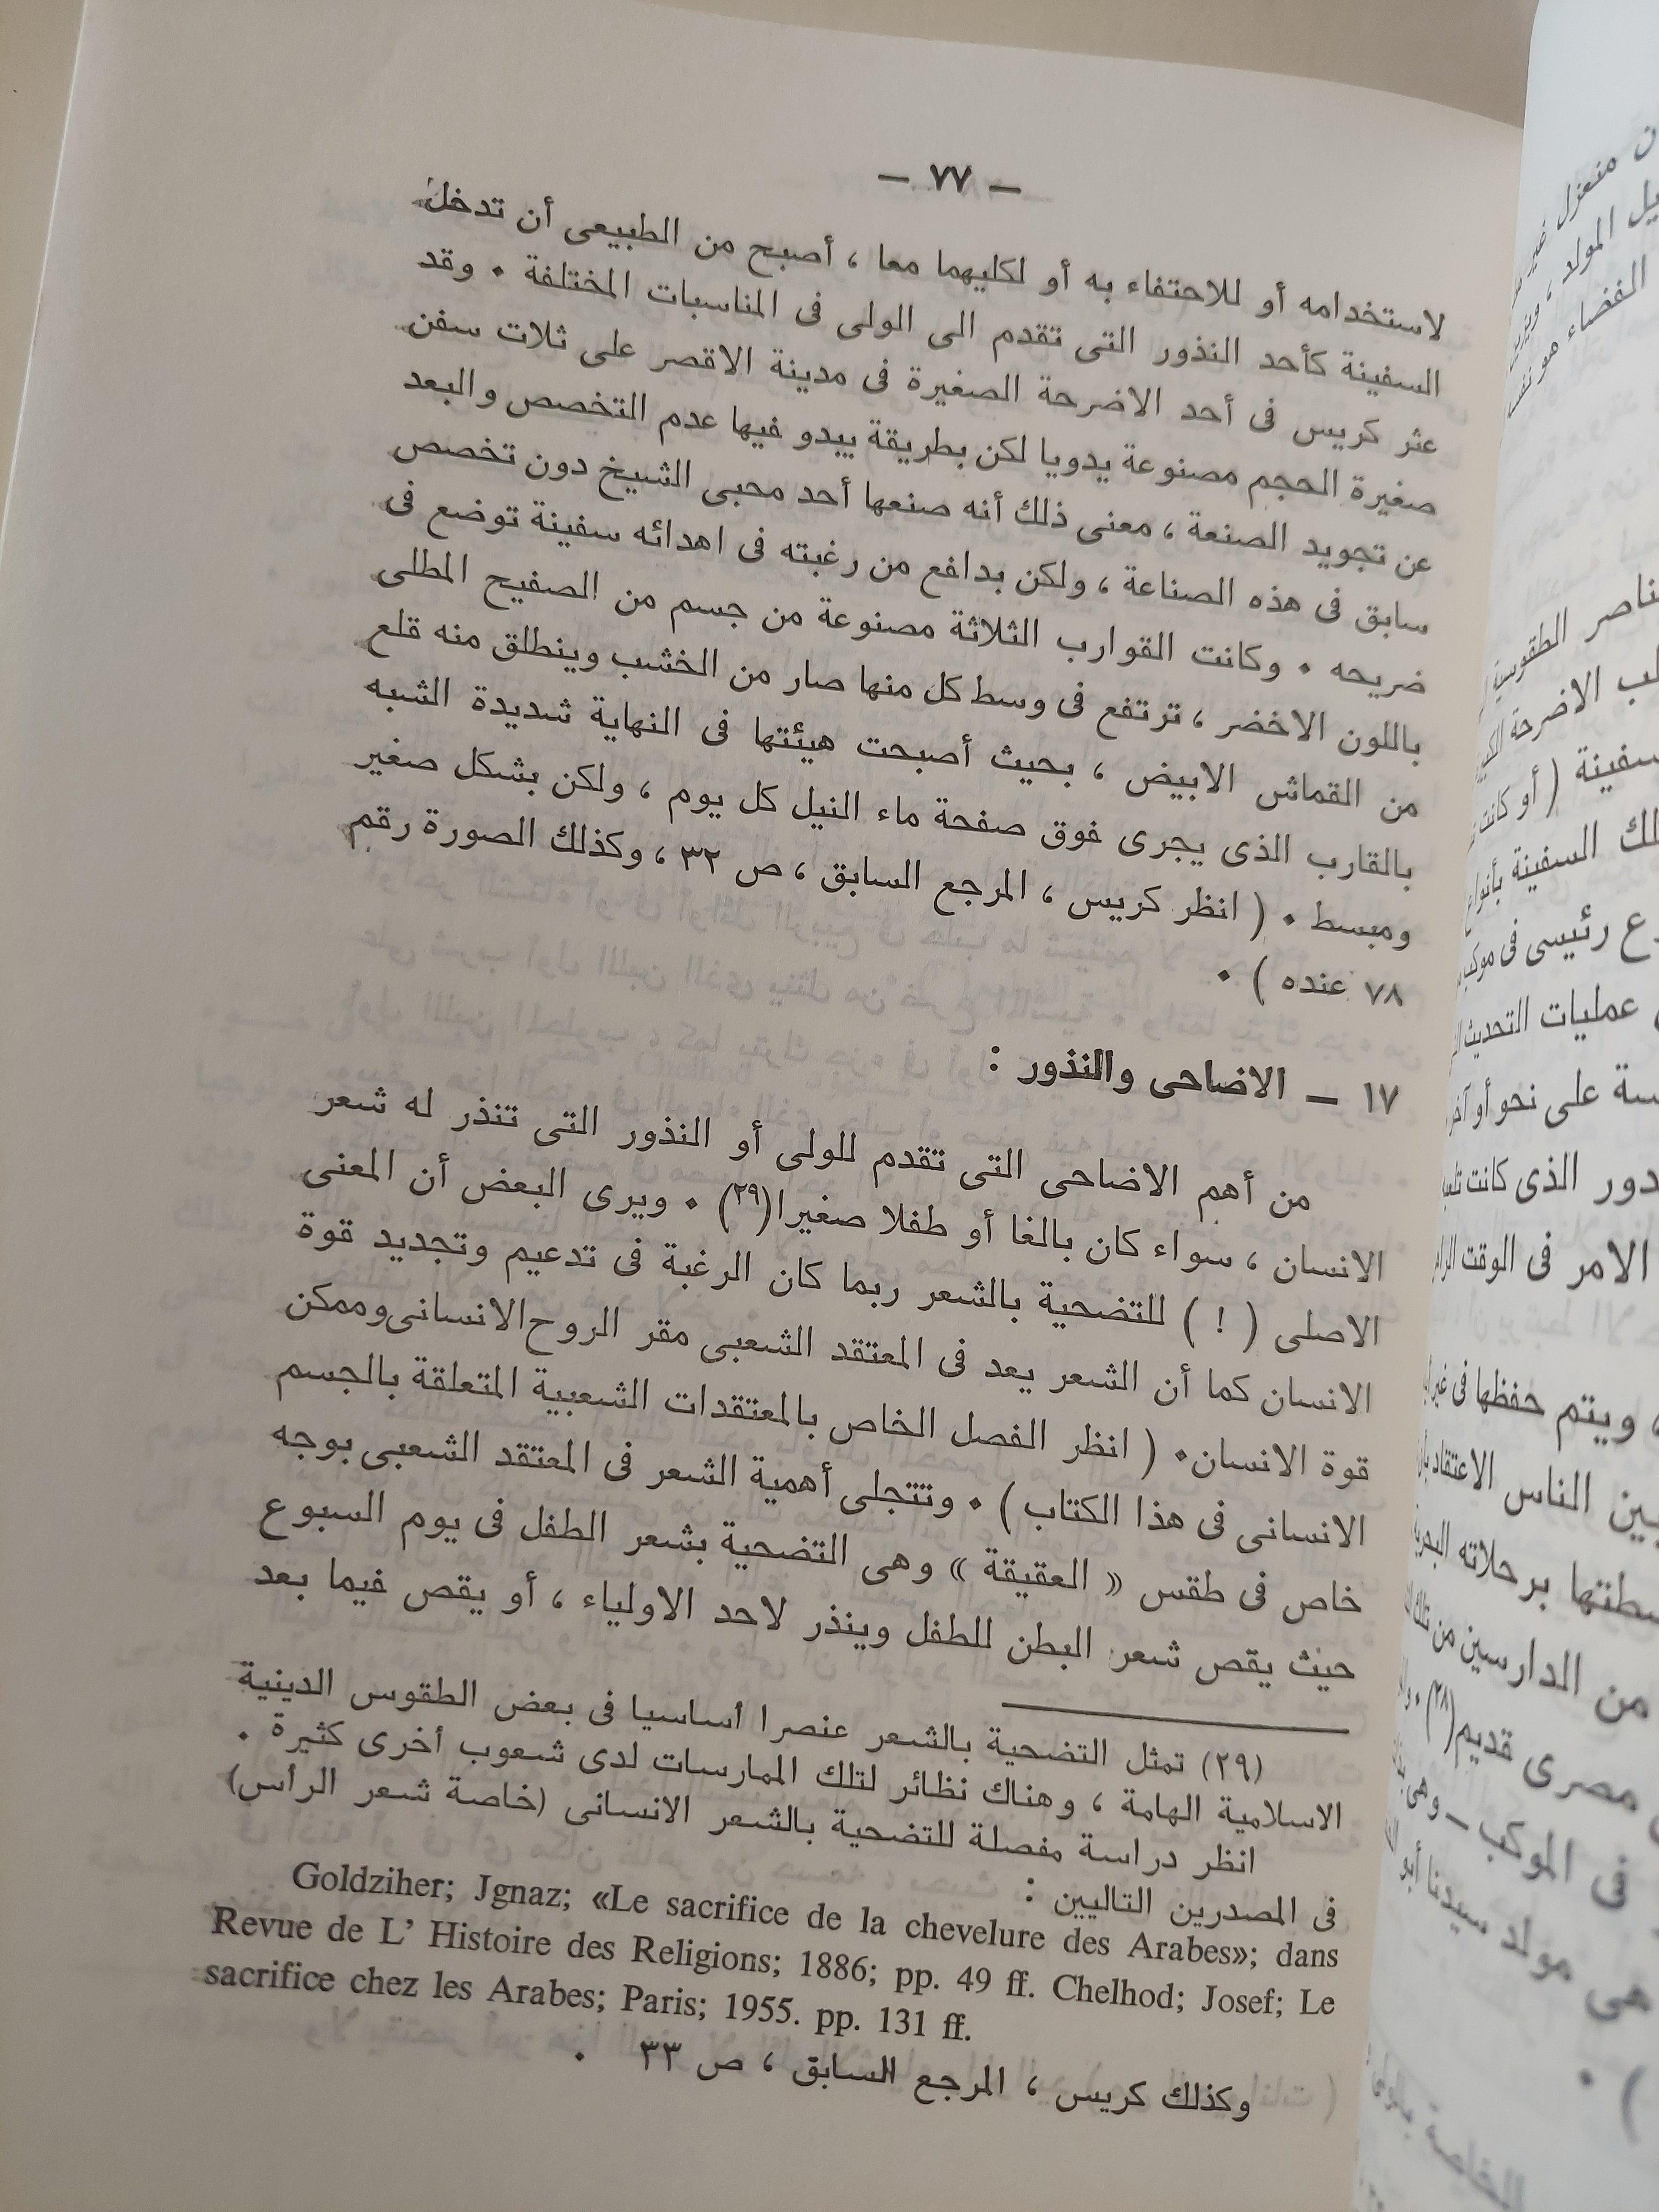 — ٧٧ —
لاستخدامه أو للاحتفاء به أو لكليهما معا ، أصبح من الطبيعى أن تدخل
السفينة كأحد النذور التى تقدم الى الولى فى المناسبات المختلفة . وقد
عثر كريس فى أحد الاضرحة الصغيرة فى مدينة الاقصر على ثلاث سفن
صغيرة الحجم مصنوعة يدويا لكن بطريقة يبدو فيها عدم التخصص والبعد
عن تجويد الصنعة ، معنى ذلك أنه صنعها أحد محبى الشيخ دون تخصص
سابق فى هذه الصناعة ، ولكن بدافع من رغبته فى اهدائه سفينة توضع فى
ضريحه . وكانت القوارب الثلاثة مصنوعة من جسم من الصفيح المطلى
باللون الاخضر ، ترتفع فى وسط كل منها صار من الخشب وينطلق منه قلع
من القماش الابيض ، بحيث أصبحت هيئتها فى النهاية شديدة الشبه
بالقارب الذى يجرى فوق صفحة ماء النيل كل يوم ، ولكن بشكل صغير
ومبسط . ( انظر كريس ، المرجع السابق ، ص ٣٢ ، وكذلك الصورة رقم
٧٨ عنده ) .
١٧ — الاضاحى والنذور :
من أهم الاضاحى التى تقدم للولى أو النذور التى تنذر له شعر
الانسان ، سواء كان بالغا أو طفلا صغيرا(٢٩) . ويرى البعض أن المعنى
الاصلى ( ! ) للتضحية بالشعر ربما كان الرغبة فى تدعيم وتجديد قوة
الانسان كما أن الشعر يعد فى المعتقد الشعبى مقر الروح الانسانى وممكن
قوة الانسان. ( انظر الفصل الخاص بالمعتقدات الشعبية المتعلقة بالجسم
الانسانى فى هذا الكتاب ) . وتتجلى أهمية الشعر فى المعتقد الشعبى بوجه
خاص فى طقس « العقيقة » وهى التضحية بشعر الطفل فى يوم السبوع
حيث يقص شعر البطن للطفل وينذر لاحد الاولياء ، أو يقص فيما بعد
(٢٩) تمثل التضحية بالشعر عنصرا أساسيا فى بعض الطقوس الدينية
الاسلامية الهامة ، وهناك نظائر لتلك الممارسات لدى شعوب أخرى كثيرة .
انظر دراسة مفصلة للتضحية بالشعر الانسانى (خاصة شعر الرأس)
فى المصدرين التاليين :
Goldziher; Jgnaz; «Le sacrifice de la chevelure des Arabes»; dans
Revue de L' Histoire des Religions; 1886; pp. 49 ff. Chelhod; Josef; Le
sacrifice chez les Arabes; Paris; 1955. pp. 131 ff.
وكذلك كريس ، المرجع السابق ، ص ٣٣ .
منعزل غير
المولد ،
الفضاء
الطقوسية
الاضرحة
سفينة ( أو كانت
السفينة بأنواع
رئيسى فى
عمليات التحديث
على نحو أو آخر
الذى كانت
الامر فى الوقت
ويتم حفظها فى
الناس الاعتقاد
برحلاته
من الدارسين من تلك
مصرى قديم(٢٨) .
فى الموكب — وهى
هى مولد سيدنا أبو